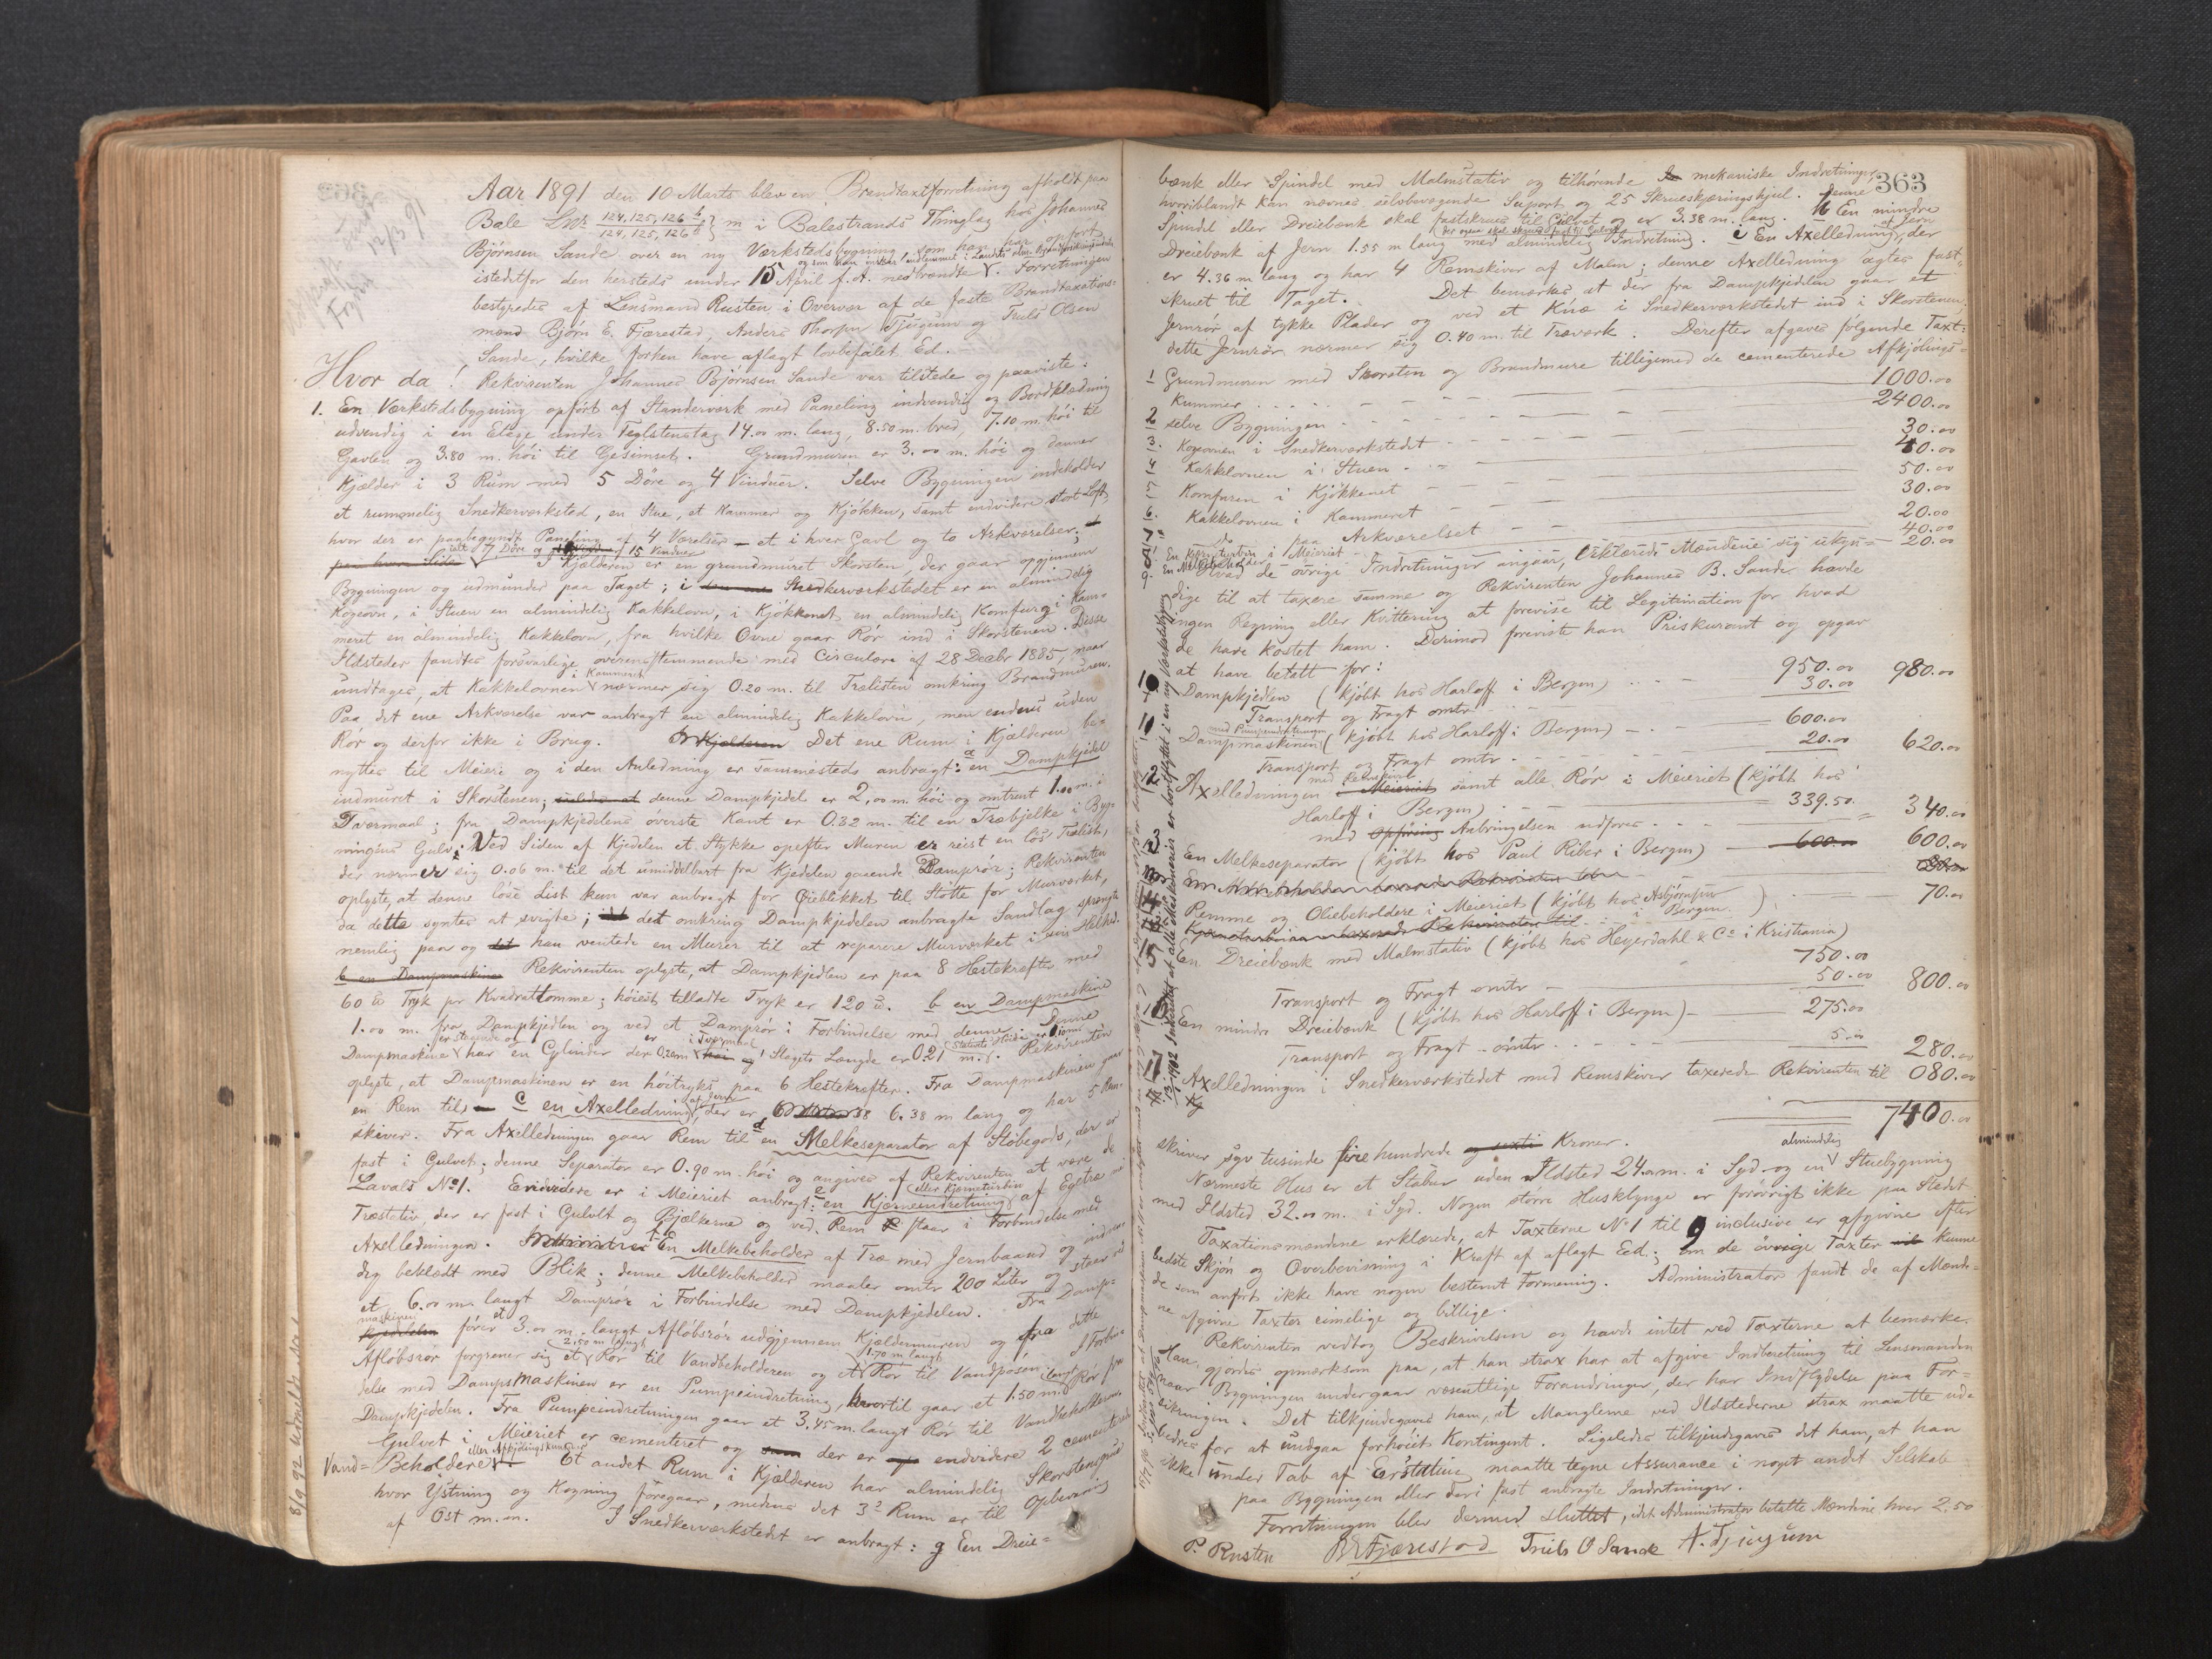 Aar 1891 den 10 Marts blev en Brandtaxtforretning afholdt paa
Bale LNr 124, 125, 126 b / 124, 125, 126 b } m i Balestrands Thinglag hos Johannes
Bjørnsen Sande over en ny Værkstedsbygning som han har opført
og som han ønsker indlemmet i Landets alm. Brandforsikringsindretn.
istedetfor den hersteds under 15 April f. A. nedbrændte. Forretningen
bestyredes af Lensmand Rusten i Overvær af de faste Brandtaxations-
mænd Bjørn E. Fjærestad, Anders Thorsen Tjugum og Truls Olsen
Sande, hvilke forhen have aflagt lovbefalet Ed.
Hvor da! Rekvirenten Johannes Bjørnsen Sande var tilstede og paaviste:
1. En Værkstedsbygning opført af Standerværk med Paneling indvendig og Bordklædning
udvendig i en Etage under Teglstenstag 14.00 m. lang, 8.50 m. bred, 7.10 m. høi til
Gavlen og 3.80 m. høi til Gesimset. Grundmuren er 3.00 m. høi og danner
Kjælder i 3 Rum med 5 Døre og 4 Vinduer. Selve Bygningen indeholder
et rummelig Snedkerværksted, en Stue, et Kammer og Kjøkken, samt endvidere stort Loft,
hvor der er paabegyndt Paneling af 4 Værelser – et i hver Gavl og to Arkværelser;
paa hver Side ialt 7 Døre og 15 Vinduer
I Kjælderen er en grundmuret Skorsten, der gaar opgjennem
Bygningen og udmunder paa Taget; i Snedkerværkstedet er en almindelig
Kogeovn, i Stuen en almindelig Kakkelovn, i Kjøkkenet en almindelig Komfur og i Kam-
meret en almindelig Kakkelovn, fra hvilke Ovne gaar Rør ind i Skorstenen. Disse
Ildsteder fandtes forsvarlige overensstemmende med Circulære af 28 Decbr 1885, naar
undtages, at Kakkelovnen i Kammeret nærmer sig 0.20 m. til Trælisten omkring Brandmuren.
Paa det ene Arkværelse var anbragt en almindelig Kakkelovn, men endnu uden
Rør og derfor ikke i Brug. I Kjælderen Det ene Rum i Kjælderen be-
nyttes til Meieri og i den Anledning er sammesteds anbragt: a en Dampkjedel
indmuret i Skorstenen; denne Dampkjedel er 2,00 m. høi og omtrent 1.00 m. i
Tværmaal; fra Dampkjedelens øverste Kant er 0.32 m. til en Træbjelke i Byg-
ningens Gulv; Ved Siden af Kjedelen et Stykke opefter Muren er reist en løs Trælist,
der nærmer sig 0.06 m. til det umiddelbart fra Kjedelen gaaende Damprør; Rekvirenten
oplyste, at denne løse List kun var anbragt for Øieblikket til Støtte for Murværket,
da dette syntes at svigte; det omkring Dampkjedelen anbragte Sandlag sprengte
nemlig paa og han ventede en Murer til at reparere Murværket i sin Helhed.
b en Dampmaskine Rekvirenten oplyste, at Dampkjedlen er paa 8 Hestekræfter med
60 ℔ Tryk pr Kvadrattomme; høiest tilladte Tryk er 120 ℔. b en Dampmaskine
1.00 m. fra Dampkjedlen og ved et Damprør i Forbindelse med denne. Denne
Dampmaskine er staaende og har en Cylinder der er 0.20 m i Tværmaal og Slagets Længde er 0.21 m. Rekvirenten
oplyste, at Dampmaskinen er en høitryks paa 6 Hestekræfter. Fra Dampmaskinen gaar
en Rem til: c en Axelledning af Jern, der er 6.38 m lang og har 5 Rem-
skiver. Fra Axelledningen gaar Rem til d en Melkeseparator af Støbegods, der er
fast i Gulvet; denne Separator er 0.90 m. høi og angives af Rekvirenten at være de
Lavals No 1. Endvidere er i Meieriet anbragt: e en Kjerneindretning eller Kjerneturbin af Egetræ med
Træstativ, der er fast i Gulvet og Bjælkerne og ved Rem staar i Forbindelse med
Axelledningen. f En Melkebeholder af Træ med Jernbaand og indven-
dig beklædt med Blik; denne Melkebeholder maaler omtr 200 Liter og staar ved
et 6.00 m. langt Damprør i Forbindelse med Dampkjedelen. Fra Damp-
maskinen fører et 3.00 m. langt Afløbsrør udgjennem Kjældermuren og fra dette
Afløbsrør forgrener sig et 2.50 m langt Rør til Vandbeholderen og et 1.70 m langt Rør til Vandposen. I Forbin-
delse med Dampmaskinen er en Pumpeindretning, hvortil gaar et 1.50 m. langt Rør fra
Dampkjedelen. Fra Pumpeindretningen gaar et 3.45 m. langt Rør til Vandbeholderen.
Gulvet i Meieriet er cementeret og der er endvidere 2 cementerede
Vand- Beholdere eller Afkjølingskummer. Et andet Rum i Kjælderen har almindelig Skorstenspibe
hvor Ystning og Kogning foregaar, medens det 3de Rum er til Opbevaring
af Ost m.m. I Snedkerværkstedet er anbragt: g En Dreie-
363
bænk eller Spindel med Malmstativ og tilhørende mekaniske Indretninger,
hvoriblandt kan nævnes selvbevægende Suport og 25 Skrueskjæringshjul. Denne
Spindel eller Dreiebænk skal fastskrues til Gulvet og er 3.38 m. lang. h En mindre
Dreiebænk af Jern 1.55 m lang der ogsaa skal skrues fast til Gulvet med almindelig Indretning. i En Axelledning af Jern, der
er 4.36 m lang og har 4 Remskiver af Malm; denne Axelledning agtes fast-
skruet til Taget. Det bemærkes at der fra Dampkjedelen gaar et
Jernrør af tykke Plader og ved et Knæ i Snedkerværkstedet ind i Skorstenen,
dette Jernrør nærmer sig 0.40 m. til Træværk. Derefter afgaves følgende Taxt:
1 Grundmuren med Skorsten og Brandmure tilligemed de cementerede Afkjølings-
Kummer 1000.00
2 selve Bygningen 2400.00
3. Kogeovnen i Snedkerværkstedet 30.00
4 Kakkelovnen i Stuen 40.00
5 Komfuren i Kjøkkenet 50.00
6. Kakkelovnen i Kammeret 30.00
7 do paa Arkværelset 20.00
8. En Kjerneturbin i Meieriet 40.00
9. En Melkebeholder 20.00
Hvad de øvrige Indretninger angaar, erklærede Mændene sig ukyn-
dige til at taxere samme og Rekvirenten Johannes B. Sande havde
ingen Regning eller Kvittering at forevise til Legitimation for hvad
de have kostet ham. Derimod foreviste han Priskurant og opgav
at have betalt for:
10 Dampkjedlen (kjøbt hos Harloff i Bergen) 950.00
Transport og Fragt omtr 30.00 980.00
11 Dampmaskinen med Pumpeindretningen (kjøbt hos Harloff i Bergen) 600.00
Transport og Fragt omtr 20.00 620.00
12 Axelledningen med Remskiver samt alle Rør i Meieriet (kjøbt hos
Harloff i Bergen) 339.50
med Anbringelsen udføres 340.00
13 En Melkeseparator (kjøbt hos Paul Riber i Bergen) 600.00 600.00
14 Remme og Oliebeholdere i Meieriet (kjøbt hos Asbjørnsen i Bergen) 70.00
15 En Dreiebænk med Malmstativ (kjøbt hos Heyerdahl & Co i Kristiania) 750.00
Transport og Fragt omtr 50.00 800.00
16 En mindre Dreiebænk (kjøbt hos Harloff i Bergen) 275.00
Transport og Fragt omtr 5.00 280.00
17 Axelledningen i Snedkerværkstedet med Remskiver taxerede Rekvirenten til 080.00
7400.00
skriver syv tusinde fire hundrede og sexti Kroner.
Nærmeste Hus er et Stabur uden Ildsted 24.00 m. i Syd og en almindelig Stuebygning
med Ildsted 32.00 m. i Syd. Nogen større Husklynge er forøvrigt ikke paa Stedet.
Taxationsmændene erklærede, at Taxterne No 1 til 9 inclusive er afgivne efter
bedste Skjøn og Overbevisning i Kraft af aflagt Eed; om de øvrige Taxter kunne
de som anført ikke have nogen bestemt Formening. Administrator fandt de af Mænde-
ne afgivne Taxter rimelige og billige.
Rekvirenten vedtog Beskrivelsen og havde intet ved Taxterne at bemærke.
Han gjordes opmærksom paa, at han strax har at afgive Indberetning til Lensmanden
naar Bygningen undergaar væsentlige Forandringer, der har Indflydelse paa For-
sikringen. Det tilkjendegaves ham, at Manglerne ved Ildstederne strax maatte ud-
bedres for at undgaa forhøiet Kontingent. Ligeledes tilkjendegaves det ham, at han
ikke under Tab af Erstatning maatte tegne Assurance i noget andet Selskab
paa Bygningen eller deri fast anbragte Indretninger.
Forretningen blev dermed sluttet, idet Administrator betalte Mændene hver 2.50
P. Rusten BEFjærestad Truls O Sande A. Tjugum